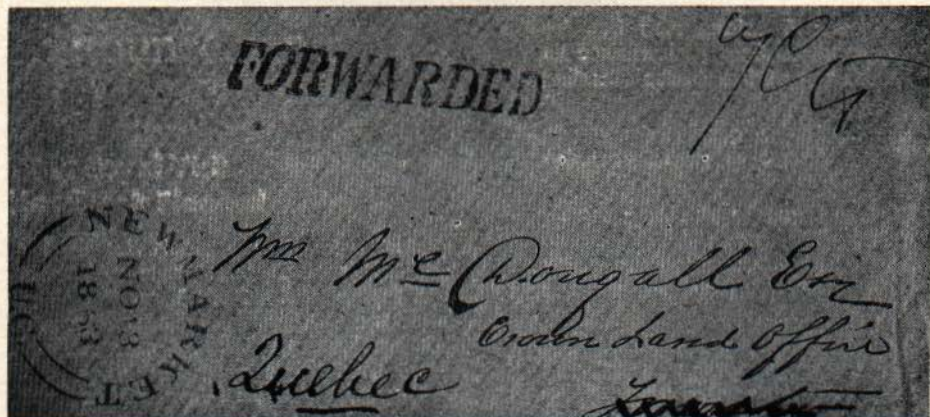 FORWARDED
NEWMARKET
NO 13
1863
U.C.
Wm Mc Dougall Esq
Crown Land Office
Quebec